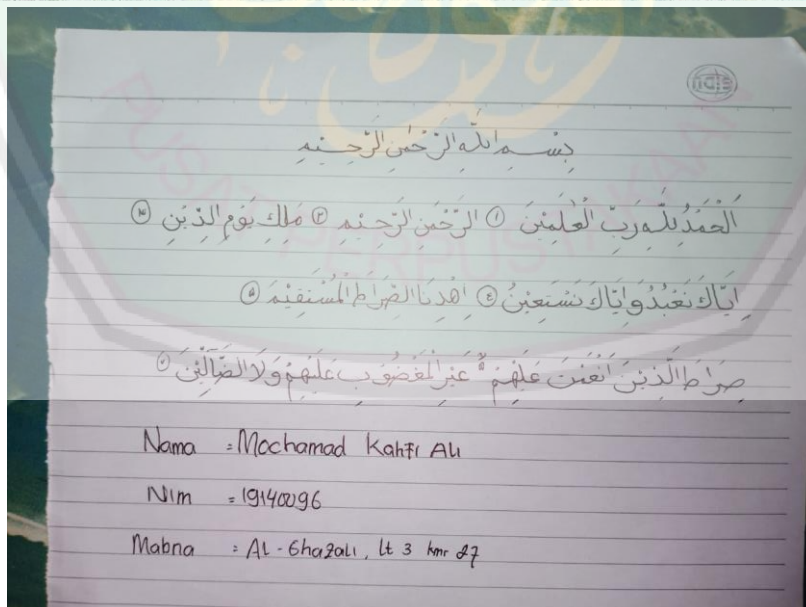 SIDU
بِسْــمِ اللّٰهِ الرَّحْمٰنِ الرَّحِـيْمِ
اَلْحَمْدُ لِلّٰهِ رَبِّ الْعٰلَمِيْنَ ① الرَّحْمٰنِ الرَّحِيْمِ ② مٰلِكِ يَوْمِ الدِّيْنِ ③
اِيَّاكَ نَعْبُدُ وَاِيَّاكَ نَسْتَعِيْنُ ④ اِهْدِنَا الصِّرَاطَ الْمُسْتَقِيْمَ ⑤
صِرَاطَ الَّذِيْنَ اَنْعَمْتَ عَلَيْهِمْ ۙ غَيْرِ الْمَغْضُوْبِ عَلَيْهِمْ وَلَا الضَّآلِّيْنَ
Nama : Mochamad Kahfi Ali
Nim = 19140096
Mabna : Al-Ghazali, lt 3 kmr 27
PUSAT PERPUSTAKAAN